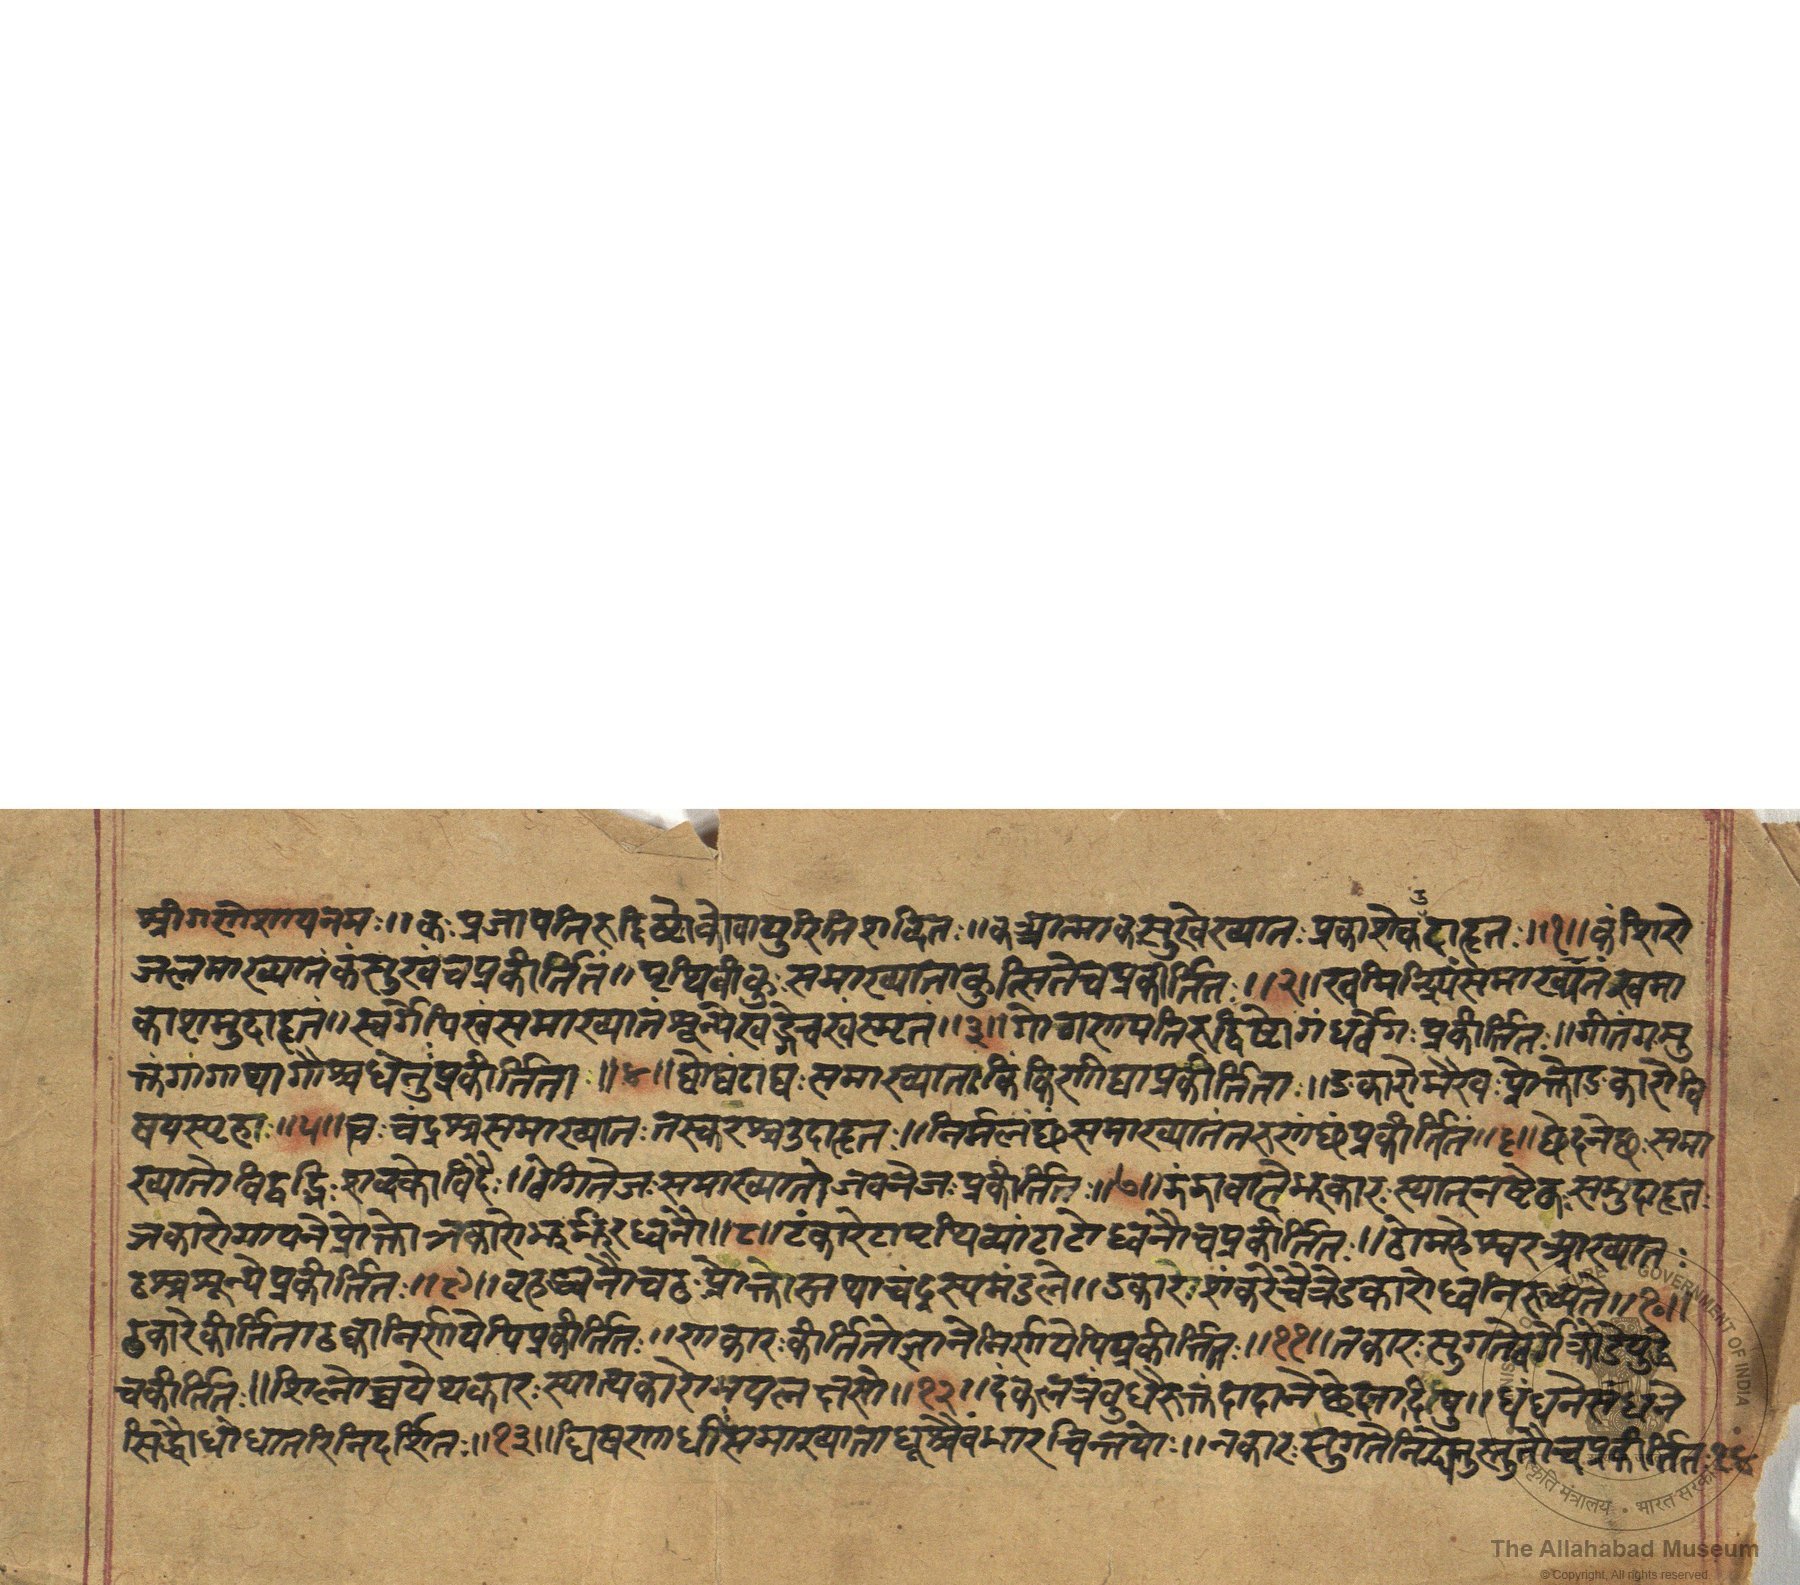 श्रीगणेशायनमः॥कः प्रजापतिरुद्दिष्टोकोवायुरितिशब्दितः॥कश्चात्माकसुखेख्यातः प्रकाशेकउदाहृतः॥१॥कंशिरो
जलमाख्यातंकंसुखंचप्रकीर्तितं॥पृथिवीकुःसमाख्याताकुत्सितेचप्रकीर्तितः॥२॥खमिन्द्रियंसमाख्यातंखमा
काशमुदाहृतं॥स्वर्गेपिखंसमाख्यातंशून्येखड्गेचखंस्मृतं॥३॥गोगणपतिरुद्दिष्टोगंधर्वेगःप्रकीर्तितः॥गीतंगमु
क्तंगांगाथागौश्चधेनुंप्रकीर्तिता॥४॥घोघंटाघःसमाख्याताकिंकिणीघाप्रकीर्तिता॥ङकारोभैरवःप्रोक्तोङकारोवि
षयस्पृहाः॥५॥चःचंद्रश्चसमाख्यातःतस्करश्चउदाहृतः॥निर्मलंछंसमाख्यातंतरुणंछंप्रकीर्तितं॥६॥छेदनेछःसमा
ख्यातोविद्वद्भिःशब्दकोविदैः॥वेगितेजःसमाख्यातोजवनेजःप्रकीर्तितः॥७॥झंझावातेझकारःस्यात्नष्टेझःसमुदाहृतः
ञकारोगायनेप्रोक्तोञकारोझर्झरध्वनौ॥८॥टंकारेटापृथिव्यांटाटोध्वनौचप्रकीर्तितः॥ठोमहेश्वरआख्यातः
ठश्चशून्येप्रकीर्तितः॥९॥वृहद्ध्वनौचठःप्रोक्तोतथाचंद्रस्यमंडले॥डकारोशंकरेचैत्रेडकारोध्वनिरुच्यते॥१०॥
ढकारेकीर्तिताढक्कानिर्णयेपिप्रकीर्तितः॥णकारःकीर्तितोज्ञानेनिर्णयेपिप्रकीर्तितः॥११॥तकारःसुगतेचौरेक्रोडेपुछे
चकीर्तितः॥शिलोच्चयेथकारःस्यात्थकारोभयलक्षणे॥१२॥दंकलत्रंबुधैरुक्तंदादानेछेदनादिषु॥धंधनेसधने
सिद्धैधोधातरिनिदर्शितः॥१३॥धिषणाधीःसमाख्याताधूश्चैवंभारचिन्तयोः॥नकारःसुगतेनिर्दिष्टस्तुस्तुतौचप्रकीर्तितः१४
The Allahabad Museum
© Copyright, All rights reserved
GOVERNMENT OF INDIA
संस्कृति मंत्रालय • भारत सरकार